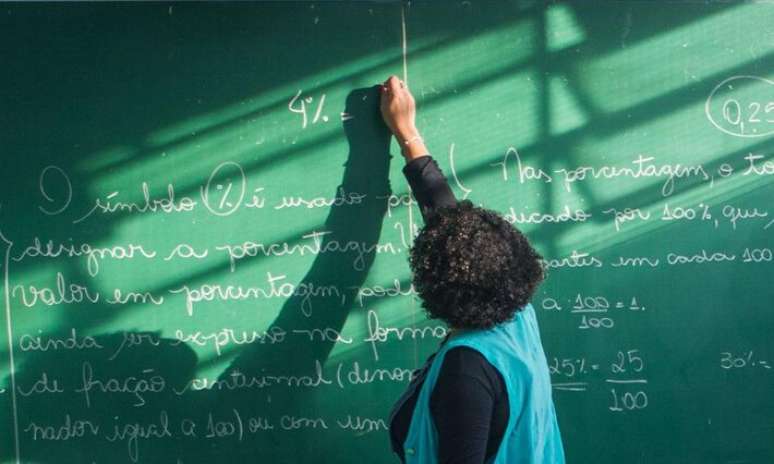 4% =
O símbolo % é usado pa
designar a porcentagem.
valor em porcentagem, pod
ainda ser expresso na forma
de fração centesimal (deno
nador igual a 100) ou com um
0,25
Nas porcentagens, o to
dicado por 100%, que
artes em cada 100
a 100/100 = 1.
25% = 25/100
30% =